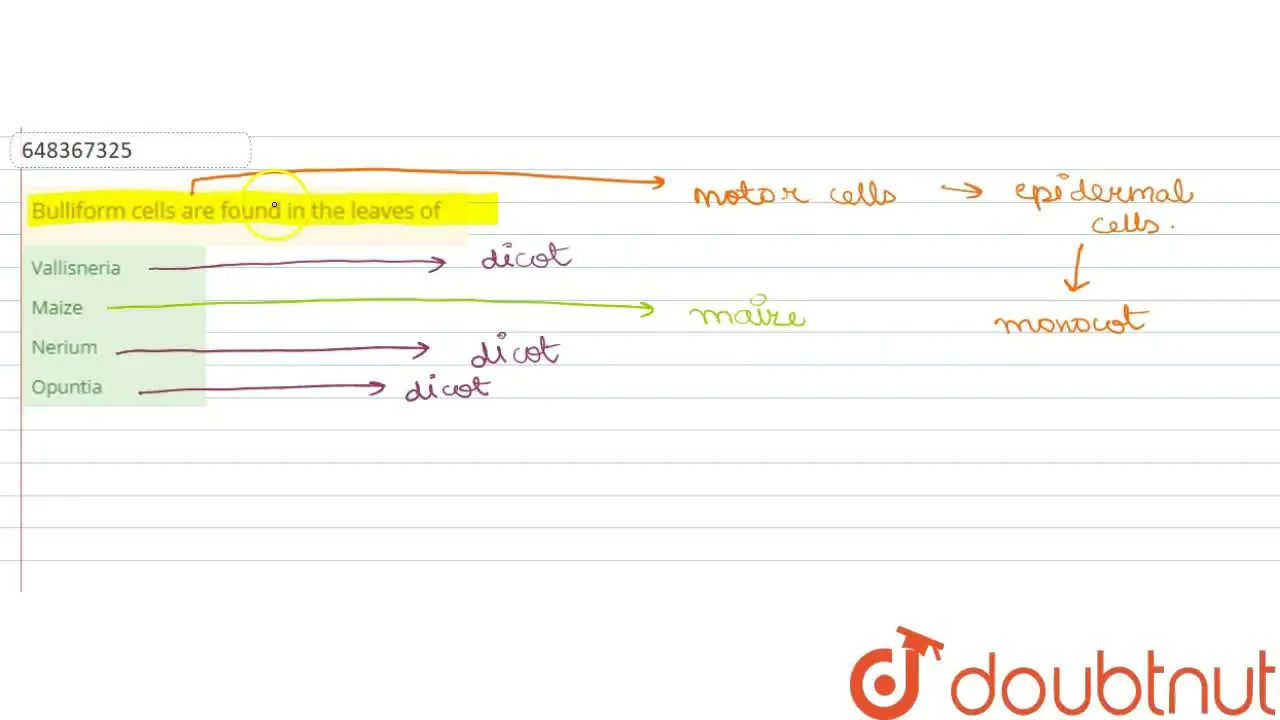 648367325
Bulliform cells are found in the leaves of
motor cells
epidermal
cells.
Vallisneria
dicot
Maize
maize
monocot
Nerium
dicot
Opuntia
dicot
doubtnut